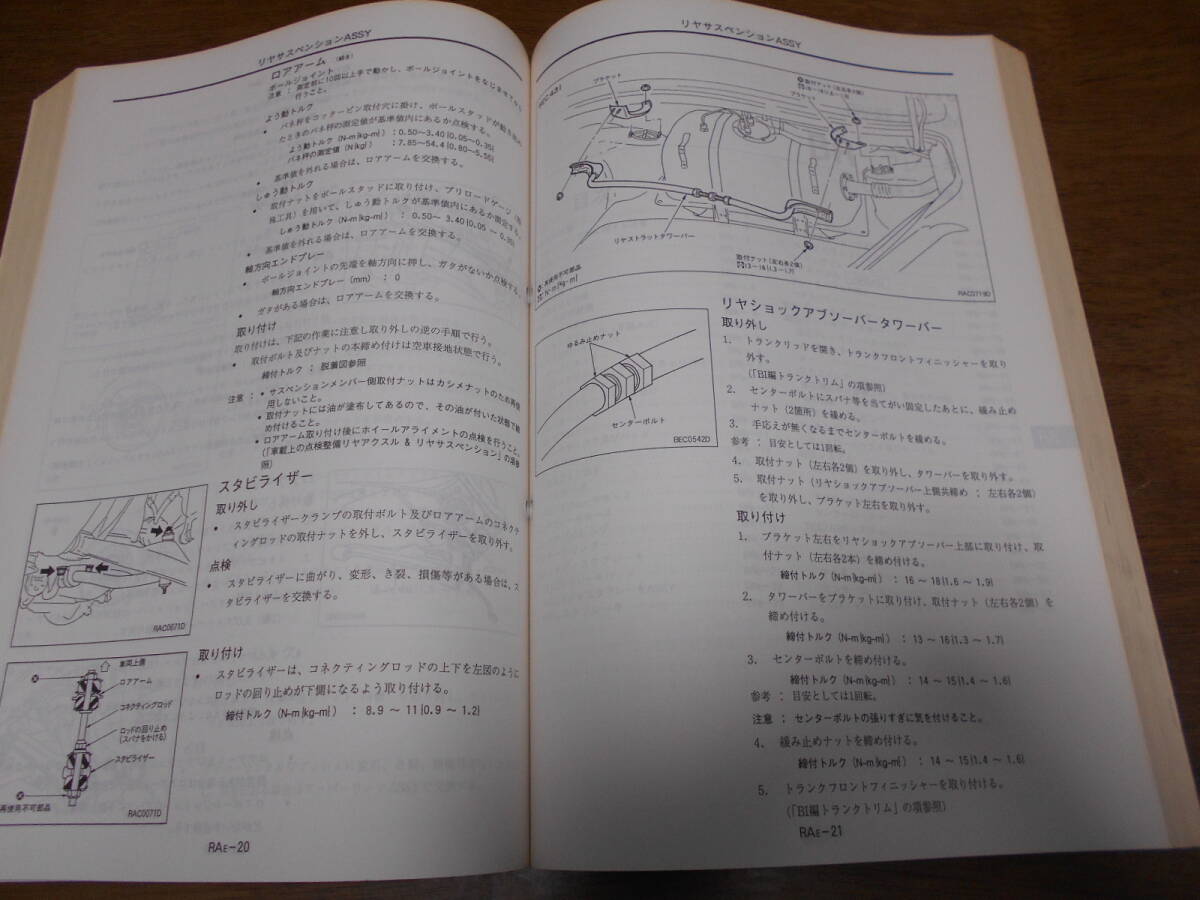 リヤサスペンションASSY
ロアアーム (続き)
ボールジョイント
注意 : 測定前に10回以上手で動かし、ボールジョイントをなじませてから
行うこと。
よう動トルク
• バネ秤をコッターピン取付穴に掛け、ボールスタッドが動き始め
たときのバネ秤の測定値が基準値内にあるか点検する。
よう動トルク (N-m{kg-m}) : 0.50~3.40{0.05~0.35}
バネ秤の測定値 (N{kg}) : 7.85~54.4{0.80~5.55}
• 基準値を外れる場合は、ロアアームを交換する。
しゅう動トルク
• 取付ナットをボールスタッドに取り付け、プリロードゲージ (特
殊工具) を用いて、しゅう動トルクが基準値内にあるか測定する。
しゅう動トルク (N-m{kg-m}) : 0.50~ 3.40{0.05 ~ 0.35}
• 基準値を外れる場合は、ロアアームを交換する。
軸方向エンドプレー
• ボールジョイントの先端を軸方向に押し、ガタがないか点検する。
軸方向エンドプレー (mm) : 0
• ガタがある場合は、ロアアームを交換する。
取り付け
取り付けは、下記の作業に注意し取り外しの逆の手順で行う。
• 取付ボルト及びナットの本締め付けは空車接地状態で行う。
締付トルク : 脱着図参照
注意 : • サスペンションメンバー側取付ナットはカシメナットのため再使
用しないこと。
• 取付ナットには油が塗布してあるので、その油が付いた状態で締
め付けること。
• ロアアーム取り付け後にホイールアライメントの点検を行うこと。
(「車載上の点検整備リヤアクスル & リヤサスペンション」の項参
照)
スタビライザー
取り外し
• スタビライザークランプの取付ボルト及びロアアームのコネクテ
ィングロッドの取付ナットを外し、スタビライザーを取り外す。
点検
• スタビライザーに曲がり、変形、き裂、損傷等がある場合は、ス
タビライザーを交換する。
RAC0071D
取り付け
• スタビライザーは、コネクティングロッドの上下を左図のように
ロッドの回り止めが下側になるよう取り付ける。
締付トルク (N-m{kg-m}) : 8.9 ~ 11{0.9 ~ 1.2}
車両上側
ロアアーム
コネクティングロッド
ロッドの回り止め
(スパナをかける)
スタビライザー
再使用不可部品
RAC0071D
RAE-20
リヤサスペンションASSY
SEC.431
ブラケット
取付ナット(左右各2個)
ブラケット
リヤストラットタワーバー
取付ナット(左右各2個)
13~16{1.3~1.7}
: 再使用不可部品
: N-m{kg-m}
RAC0719D
ゆるみ止めナット
センターボルト
BEC0542D
リヤショックアブソーバータワーバー
取り外し
1. トランクリッドを開き、トランクフロントフィニッシャーを取り
外す。
(「BI編トランクトリム」の項参照)
2. センターボルトにスパナ等を当てがい固定したあとに、緩み止め
ナット (2箇所) を緩める。
3. 手応えが無くなるまでセンターボルトを緩める。
参考 : 目安としては1回転。
4. 取付ナット (左右各2個) を取り外し、タワーバーを取り外す。
5. 取付ナット (リヤショックアブソーバー上側共締め : 左右各2個)
を取り外し、ブラケット左右を取り外す。
取り付け
1. ブラケット左右をリヤショックアブソーバー上部に取り付け、取
付ナット (左右各2本) を締め付ける。
締付トルク (N-m{kg-m}) : 16 ~ 18{1.6 ~ 1.9}
2. タワーバーをブラケットに取り付け、取付ナット (左右各2個) を
締め付ける。
締付トルク (N-m{kg-m}) : 13 ~ 16{1.3 ~ 1.7}
3. センターボルトを締め付ける。
締付トルク (N-m{kg-m}) : 14 ~ 15{1.4 ~ 1.6}
参考 : 目安としては1回転。
注意 : センターボルトの張りすぎに気を付けること。
4. 緩み止めナットを締め付ける。
締付トルク (N-m{kg-m}) : 14 ~ 15{1.4 ~ 1.6}
5. トランクフロントフィニッシャーを取り付ける。
(「BI編トランクトリム」の項参照)
RAE-21